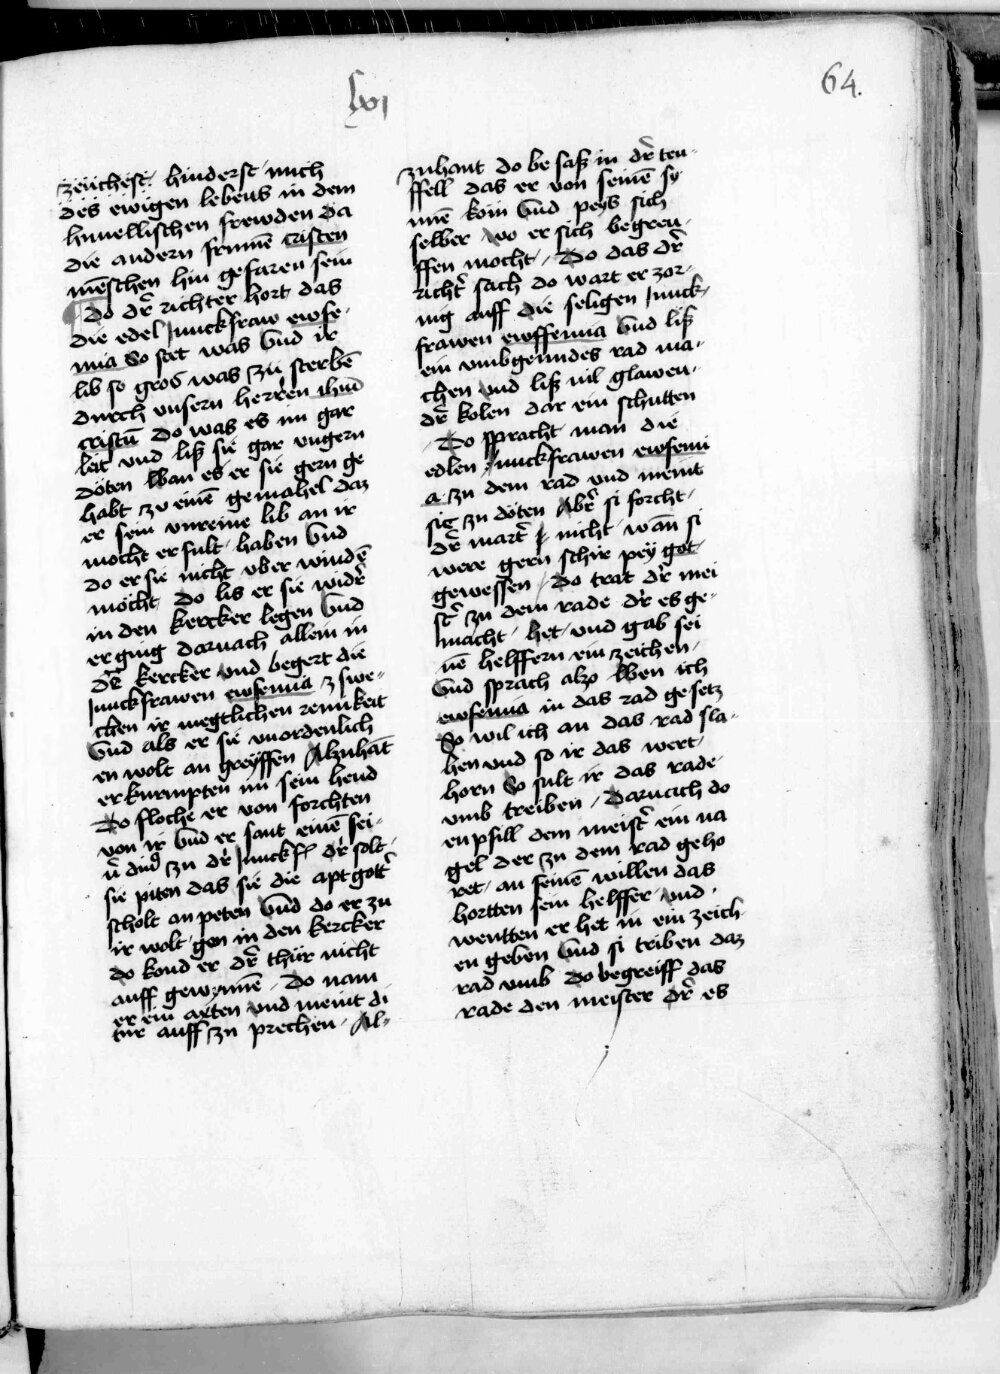 lxvi
64.
zeuchest. hinderst mich
des ewigen lebens in dem
himellischen frewden da
die andern frumē cristen
mēschen hin gefaren sein
Do dr̄ richter hort das
die edel junckfraw ewfe-
mia So stet was Vnd ir
lib so gros was zu sterbē
durch vnsern herren ihm̄
cristū Do was es im gar
leit vnd liß sie gar vngern
döten Wan es er sie gern ge
habt zv einē gemahel daz
er sein vnreine lib an ir
mocht erfult haben Vnd
do er sie nicht vber windē
möcht do lis er sie widr̄
in den kercker legen Vnd
er ging darnach allein in
dr̄ kercker vnd begert die
junckfrawen ewfemia zswe-
chen ir megtlichen reinikeit
Vnd als er sie vnordenlich
en wolt an greyffen Alzuhāt
erkrumpten im sein hend
Do floche er von forchten
von ir Vnd er sant einē sei-
sie piten das sie die aptgott̄
scholt an peten Vnd do er zu
ir wolt gen in den kercker
do kond er dr̄ thür nicht
auff gewynnē Do nam
er ein axten vnd meint di
tür auff zu prechen Al-
zuhant do be saß in dr̄ teu-
ffell das er von seinē sy
nnē kom Vnd peys sich
selber wo er sich begreu-
ffen mocht Do das dr̄
richt̄ sach do wart er zor-
nig auff die seligen junck-
frawen ewffemia Vnd liß
ein vmbgeundes rad ma-
chen vnd liß vil glawen-
dr̄ kolen dar ein schutten
Do spracht man die
edlen junckfrawen ewfemi
a zu dem rad vnd meint
sie zu döten Abr̄ si forcht
dr̄ mart̄ nicht wan̄ si
were gern schir pey got
gewessen Do trat dr̄ mei
st̄ zu dem rade dr̄ es ge-
macht het vnd gab sei
nē helffern ein zeichen
Vnd sprach alzo Wen ich
ewfemia in das rad gesetz
So wil ich an das rad sla-
hen vnd so ir das wert
horn So sult ir das rade
vmb treiben Darnach do
enpfill dem meist̄ ein na
gel der zu dem rad geho
ret an seinē willen das
hortten sein helffer vnd
wentten er het in ein zeich
en geben Vnd si triben daz
rad vmb Do begreiff das
rade den meister dr̄ es